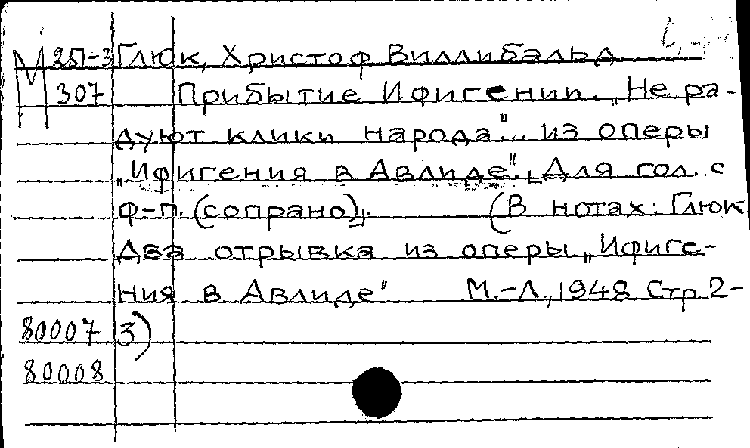 М 25П-3 Глюк, Христоф Виллибальд
307 Прибытие Ифигении. „Не ра-
дуют клики народа"... из оперы
„Ифигения в Авлиде". [Для гол. с
ф-п. (сопрано)]. (В нотах: Глюк
Два отрывка из оперы „Ифиге-
ния в Авлиде" М.-Л., 1948 Стр. 2-
80007 3)
80008